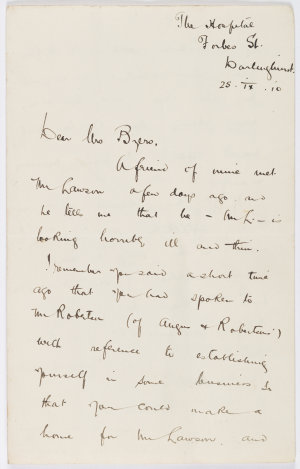 The Hospital
Forbes St.
Darlinghurst.
25. ix. 10
Dear Mrs Byers.
A friend of mine met
Mr Lawson a few days ago and
he tells me that he - Mr L - is
looking horribly ill and thin.
I remember you said a short time
ago that you had spoken to
Mr Robertson (of Angus & Robertson's)
with reference to establishing
yourself in some business so
that you could make a
home for Mr Lawson, and